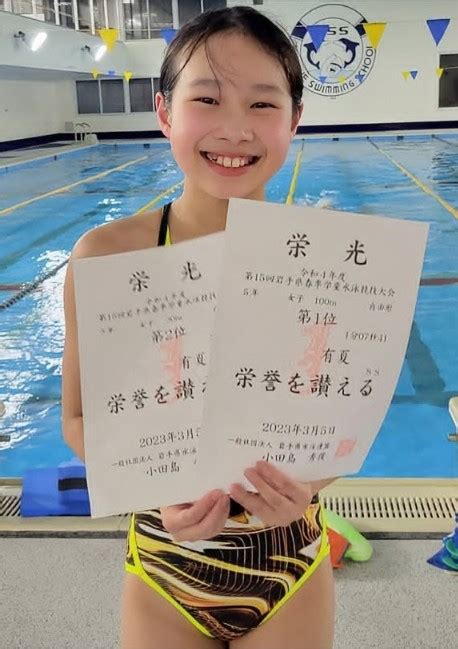 SS
E SWIMMING SCHOOL
栄光
令和4年度
第15回岩手県春季学童水泳競技大会
5年 女子 100m 自由形
第1位
1分07秒41
有夏
SS
栄誉を讃える
2023年3月5日
一般社団法人 岩手県水泳連盟
会長 小田島 秀俊
栄光
令和4年度
第15回岩手県春季学童水泳競技
5年 女子 50m
第2位
有夏
栄誉を讃える
2023年3月5
一般社団法人 岩手県水泳連盟
小田島